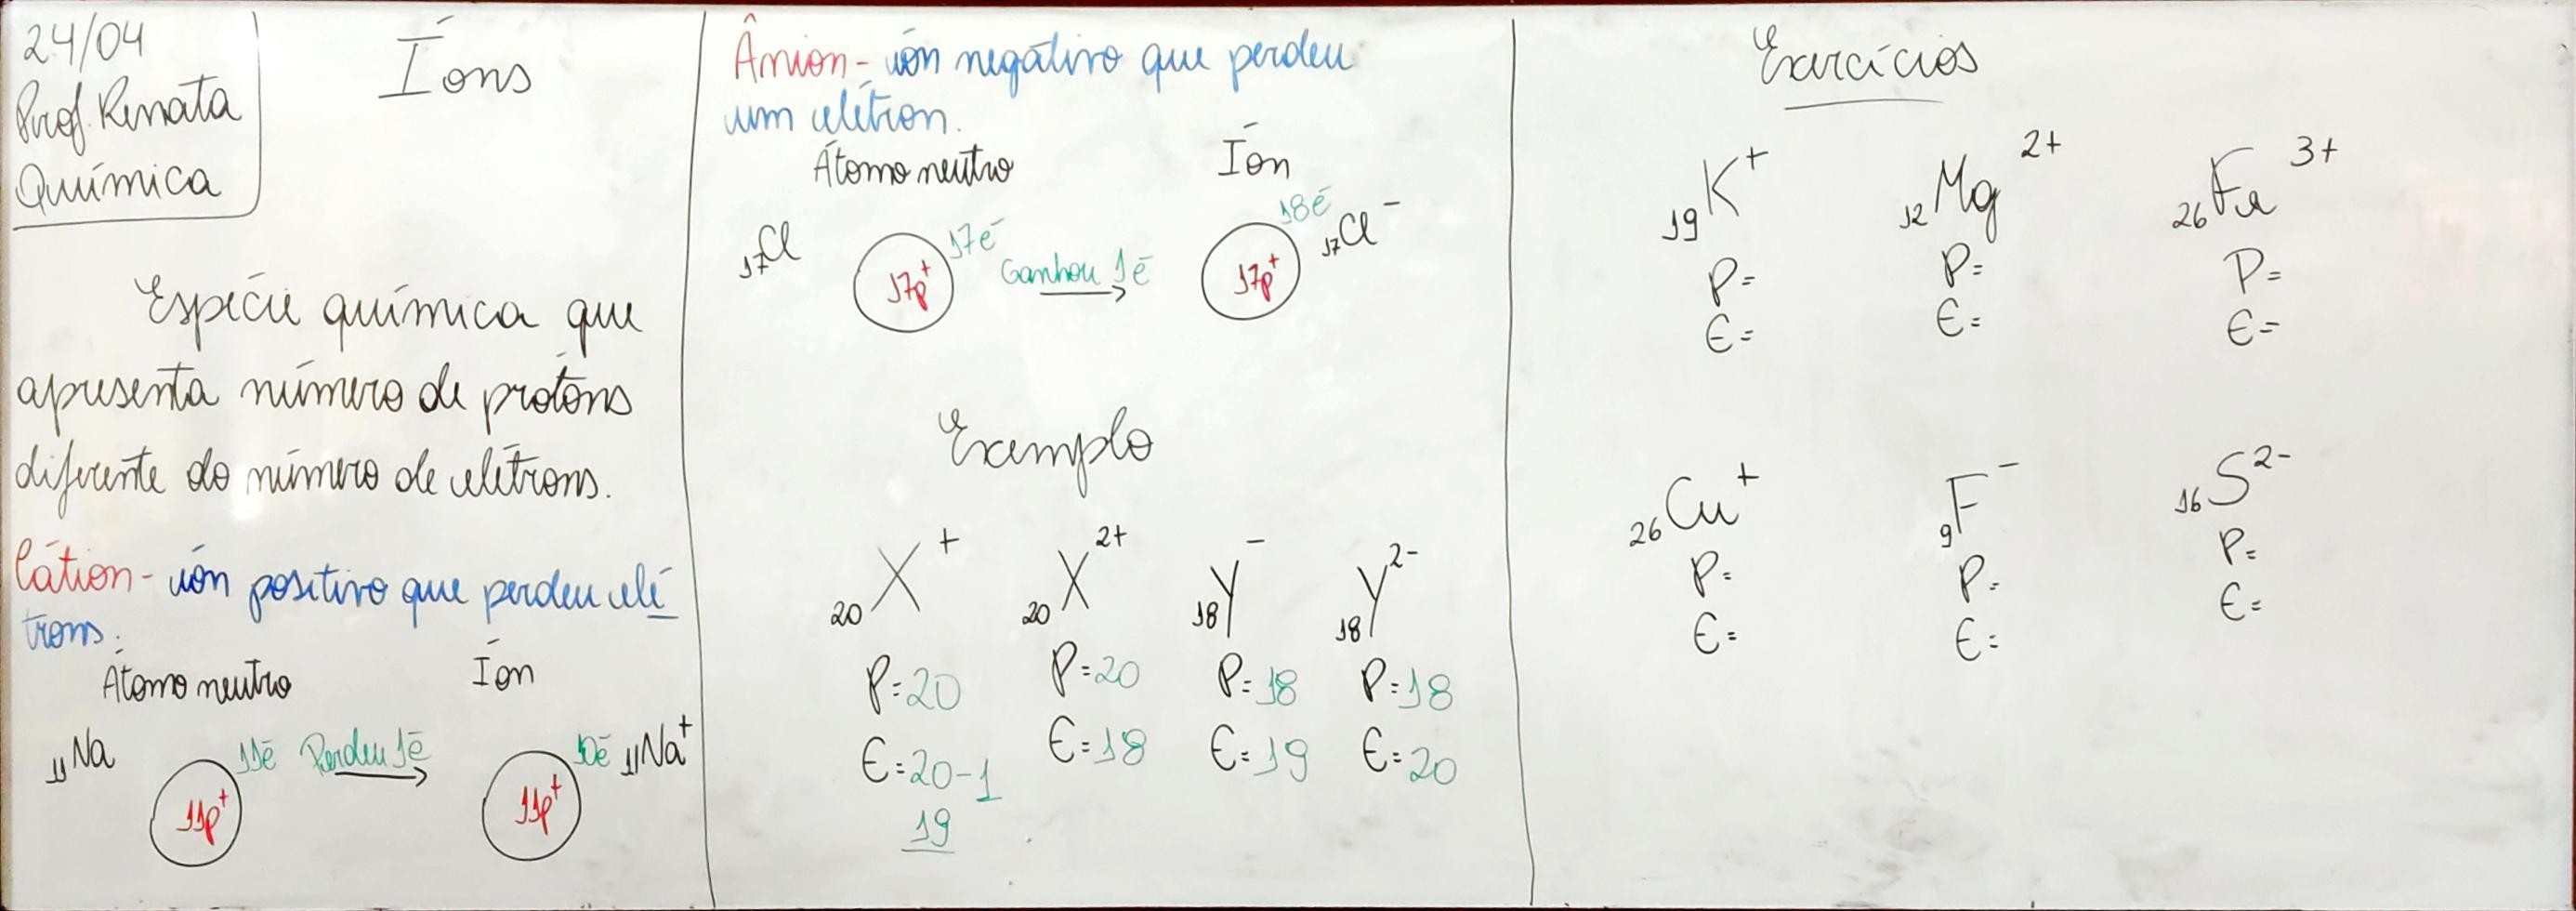 24/04
Prof. Renata
Química
Íons
Espécie química que
apresenta número de protóns
diferente do número de elétrons.
Cátion - íon positivo que perdeu elé
trons.
Átomo neutro Íon
11Na 11p+ 11é Perdeu 1é 11p+ 10é 11Na+
Ânion - íon negativo que perdeu
um elétron.
Átomo neutro Íon
17Cl 17p+ 17é Ganhou 1é 17p+ 18é 17Cl-
Exemplo
20X+ 20X2+ 18Y- 18Y2-
P=20 P=20 P=18 P=18
E=20-1 E=18 E=19 E=20
19
Exercícios
19K+ 12Mg2+ 26Fe3+
P= P= P=
E= E= E=
26Cu+ 9F- 16S2-
P= P= P=
E= E= E=